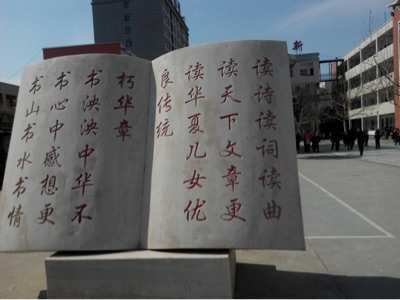 读诗读词读曲
读天下文章更
读华夏儿女优
良传统
书山书水书情
书心中感想更
书泱泱中华不
朽华章
新